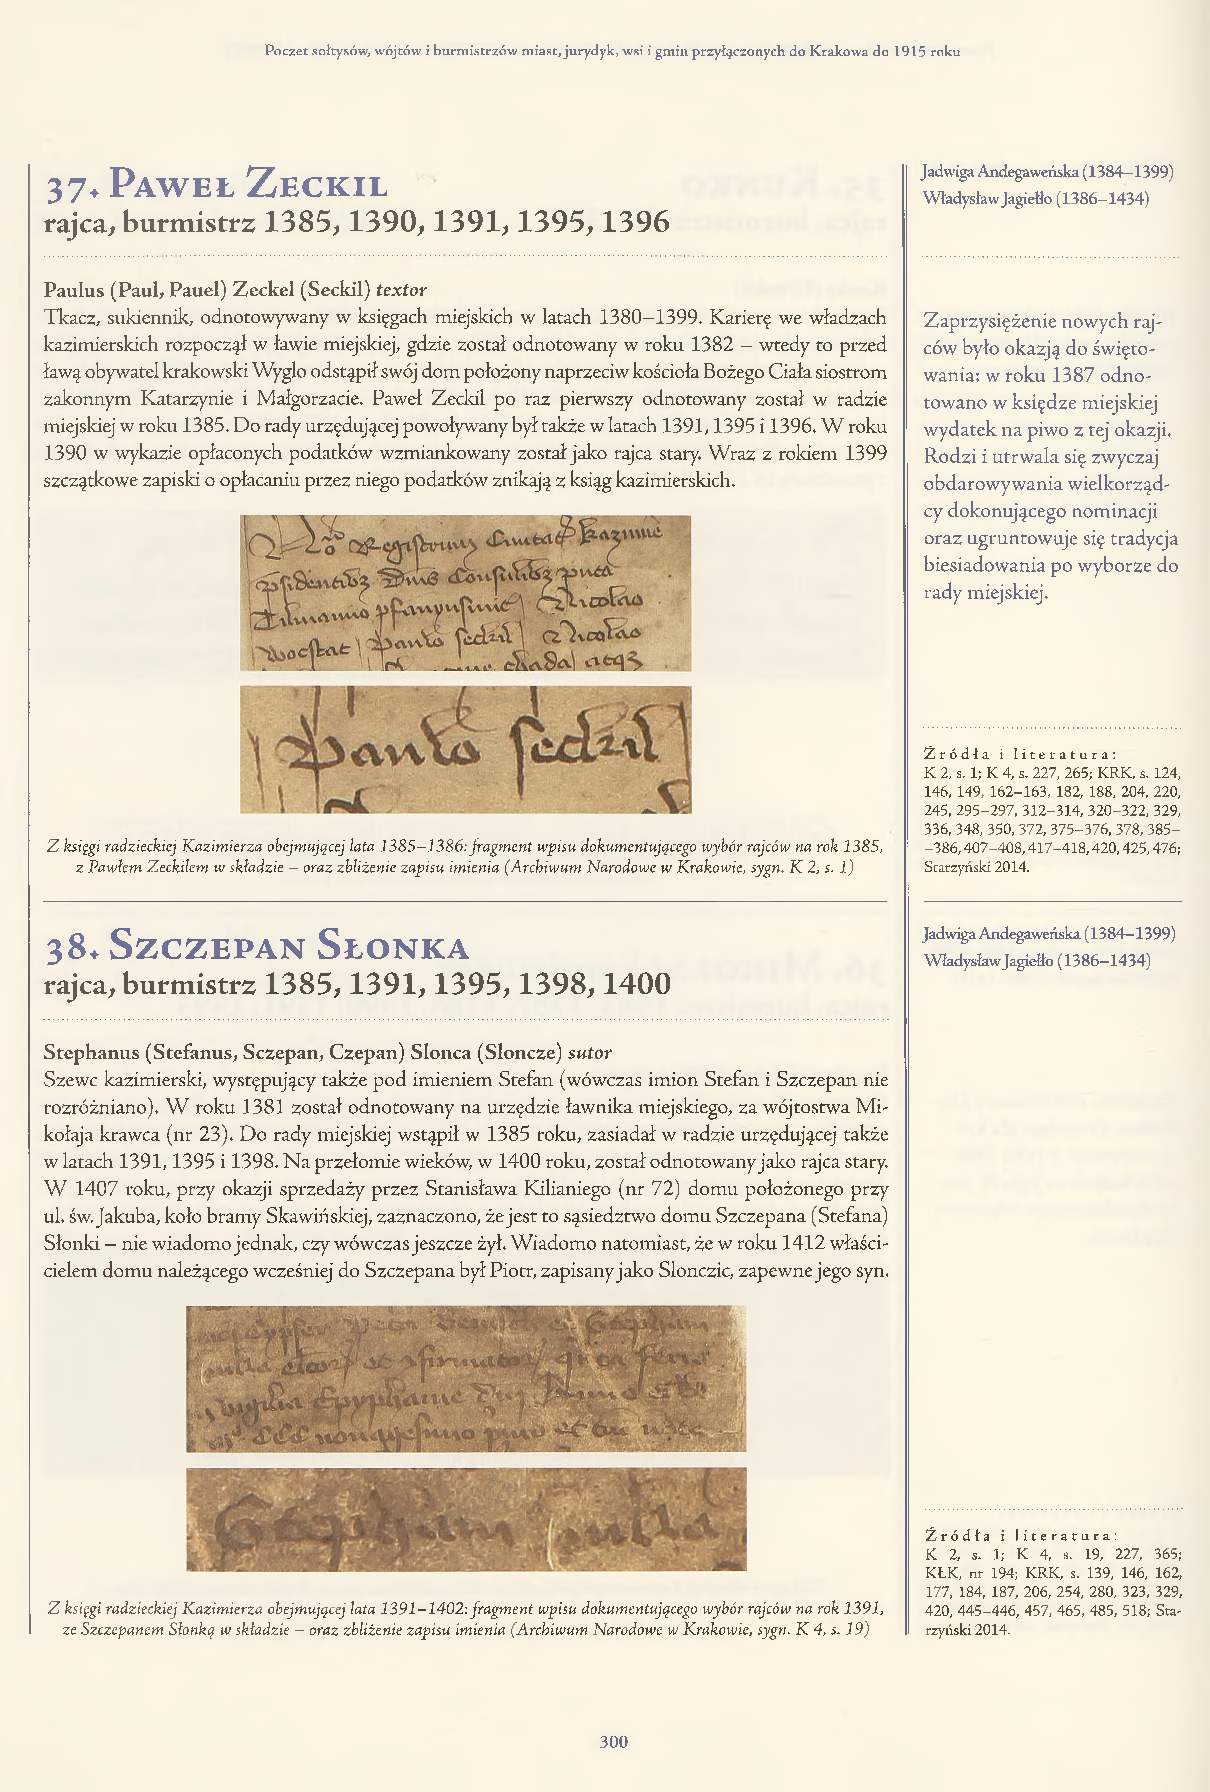 Poczet sołtysów, wójtów i burmistrzów miast, jurydyk, wsi i gmin przyłączonych do Krakowa do 1915 roku
37. Paweł Zeckil
rajca, burmistrz 1385, 1390, 1391, 1395, 1396
Paulus (Paul, Pauel) Zeckel (Seckil) textor
Tkacz, sukiennik, odnotowywany w księgach miejskich w latach 1380–1399. Karierę we władzach
kazimierskich rozpoczął w ławie miejskiej, gdzie został odnotowany w roku 1382 – wtedy to przed
ławą obywatel krakowski Wyglo odstąpił swój dom położony naprzeciw kościoła Bożego Ciała siostrom
zakonnym Katarzynie i Małgorzacie. Paweł Zeckil po raz pierwszy odnotowany został w radzie
miejskiej w roku 1385. Do rady urzędującej powoływany był także w latach 1391, 1395 i 1396. W roku
1390 w wykazie opłaconych podatków wzmiankowany został jako rajca stary. Wraz z rokiem 1399
szczątkowe zapiski o opłacaniu przez niego podatków znikają z ksiąg kazimierskich.
Z księgi radzieckiej Kazimierza obejmującej lata 1385–1386: fragment wpisu dokumentującego wybór rajców na rok 1385,
z Pawłem Zeckilem w składzie – oraz zbliżenie zapisu imienia (Archiwum Narodowe w Krakowie, sygn. K 2, s. 1)
Jadwiga Andegaweńska (1384–1399)
Władysław Jagiełło (1386–1434)
Zaprzysiężenie nowych raj-
ców było okazją do święto-
wania: w roku 1387 odno-
towano w księdze miejskiej
wydatek na piwo z tej okazji.
Rodzi i utrwala się zwyczaj
obdarowywania wielkorząd-
cy dokonującego nominacji
oraz ugruntowuje się tradycja
biesiadowania po wyborze do
rady miejskiej.
Źródła i literatura:
K 2, s. 1; K 4, s. 227, 265; KRK, s. 124,
146, 149, 162–163, 182, 188, 204, 220,
245, 295–297, 312–314, 320–322, 329,
336, 348, 350, 372, 375–376, 378, 385–
–386, 407–408, 417–418, 420, 425, 476;
Starzyński 2014.
38. Szczepan Słonka
rajca, burmistrz 1385, 1391, 1395, 1398, 1400
Stephanus (Stefanus, Sczepan, Czepan) Slonca (Sloncze) sutor
Szewc kazimierski, występujący także pod imieniem Stefan (wówczas imion Stefan i Szczepan nie
rozróżniano). W roku 1381 został odnotowany na urzędzie ławnika miejskiego, za wójtostwa Mi-
kołaja krawca (nr 23). Do rady miejskiej wstąpił w 1385 roku, zasiadał w radzie urzędującej także
w latach 1391, 1395 i 1398. Na przełomie wieków, w 1400 roku, został odnotowany jako rajca stary.
W 1407 roku, przy okazji sprzedaży przez Stanisława Kilianiego (nr 72) domu położonego przy
ul. św. Jakuba, koło bramy Skawińskiej, zaznaczono, że jest to sąsiedztwo domu Szczepana (Stefana)
Słonki – nie wiadomo jednak, czy wówczas jeszcze żył. Wiadomo natomiast, że w roku 1412 właści-
cielem domu należącego wcześniej do Szczepana był Piotr, zapisany jako Slonczic, zapewne jego syn.
Z księgi radzieckiej Kazimierza obejmującej lata 1391–1402: fragment wpisu dokumentującego wybór rajców na rok 1391,
ze Szczepanem Słonką w składzie – oraz zbliżenie zapisu imienia (Archiwum Narodowe w Krakowie, sygn. K 4, s. 19)
Jadwiga Andegaweńska (1384–1399)
Władysław Jagiełło (1386–1434)
Źródła i literatura:
K 2, s. 1; K 4, s. 19, 227, 365;
KŁK, nr 194; KRK, s. 139, 146, 162,
177, 184, 187, 206, 254, 280, 323, 329,
420, 445–446, 457, 465, 485, 518; Sta-
rzyński 2014.
300